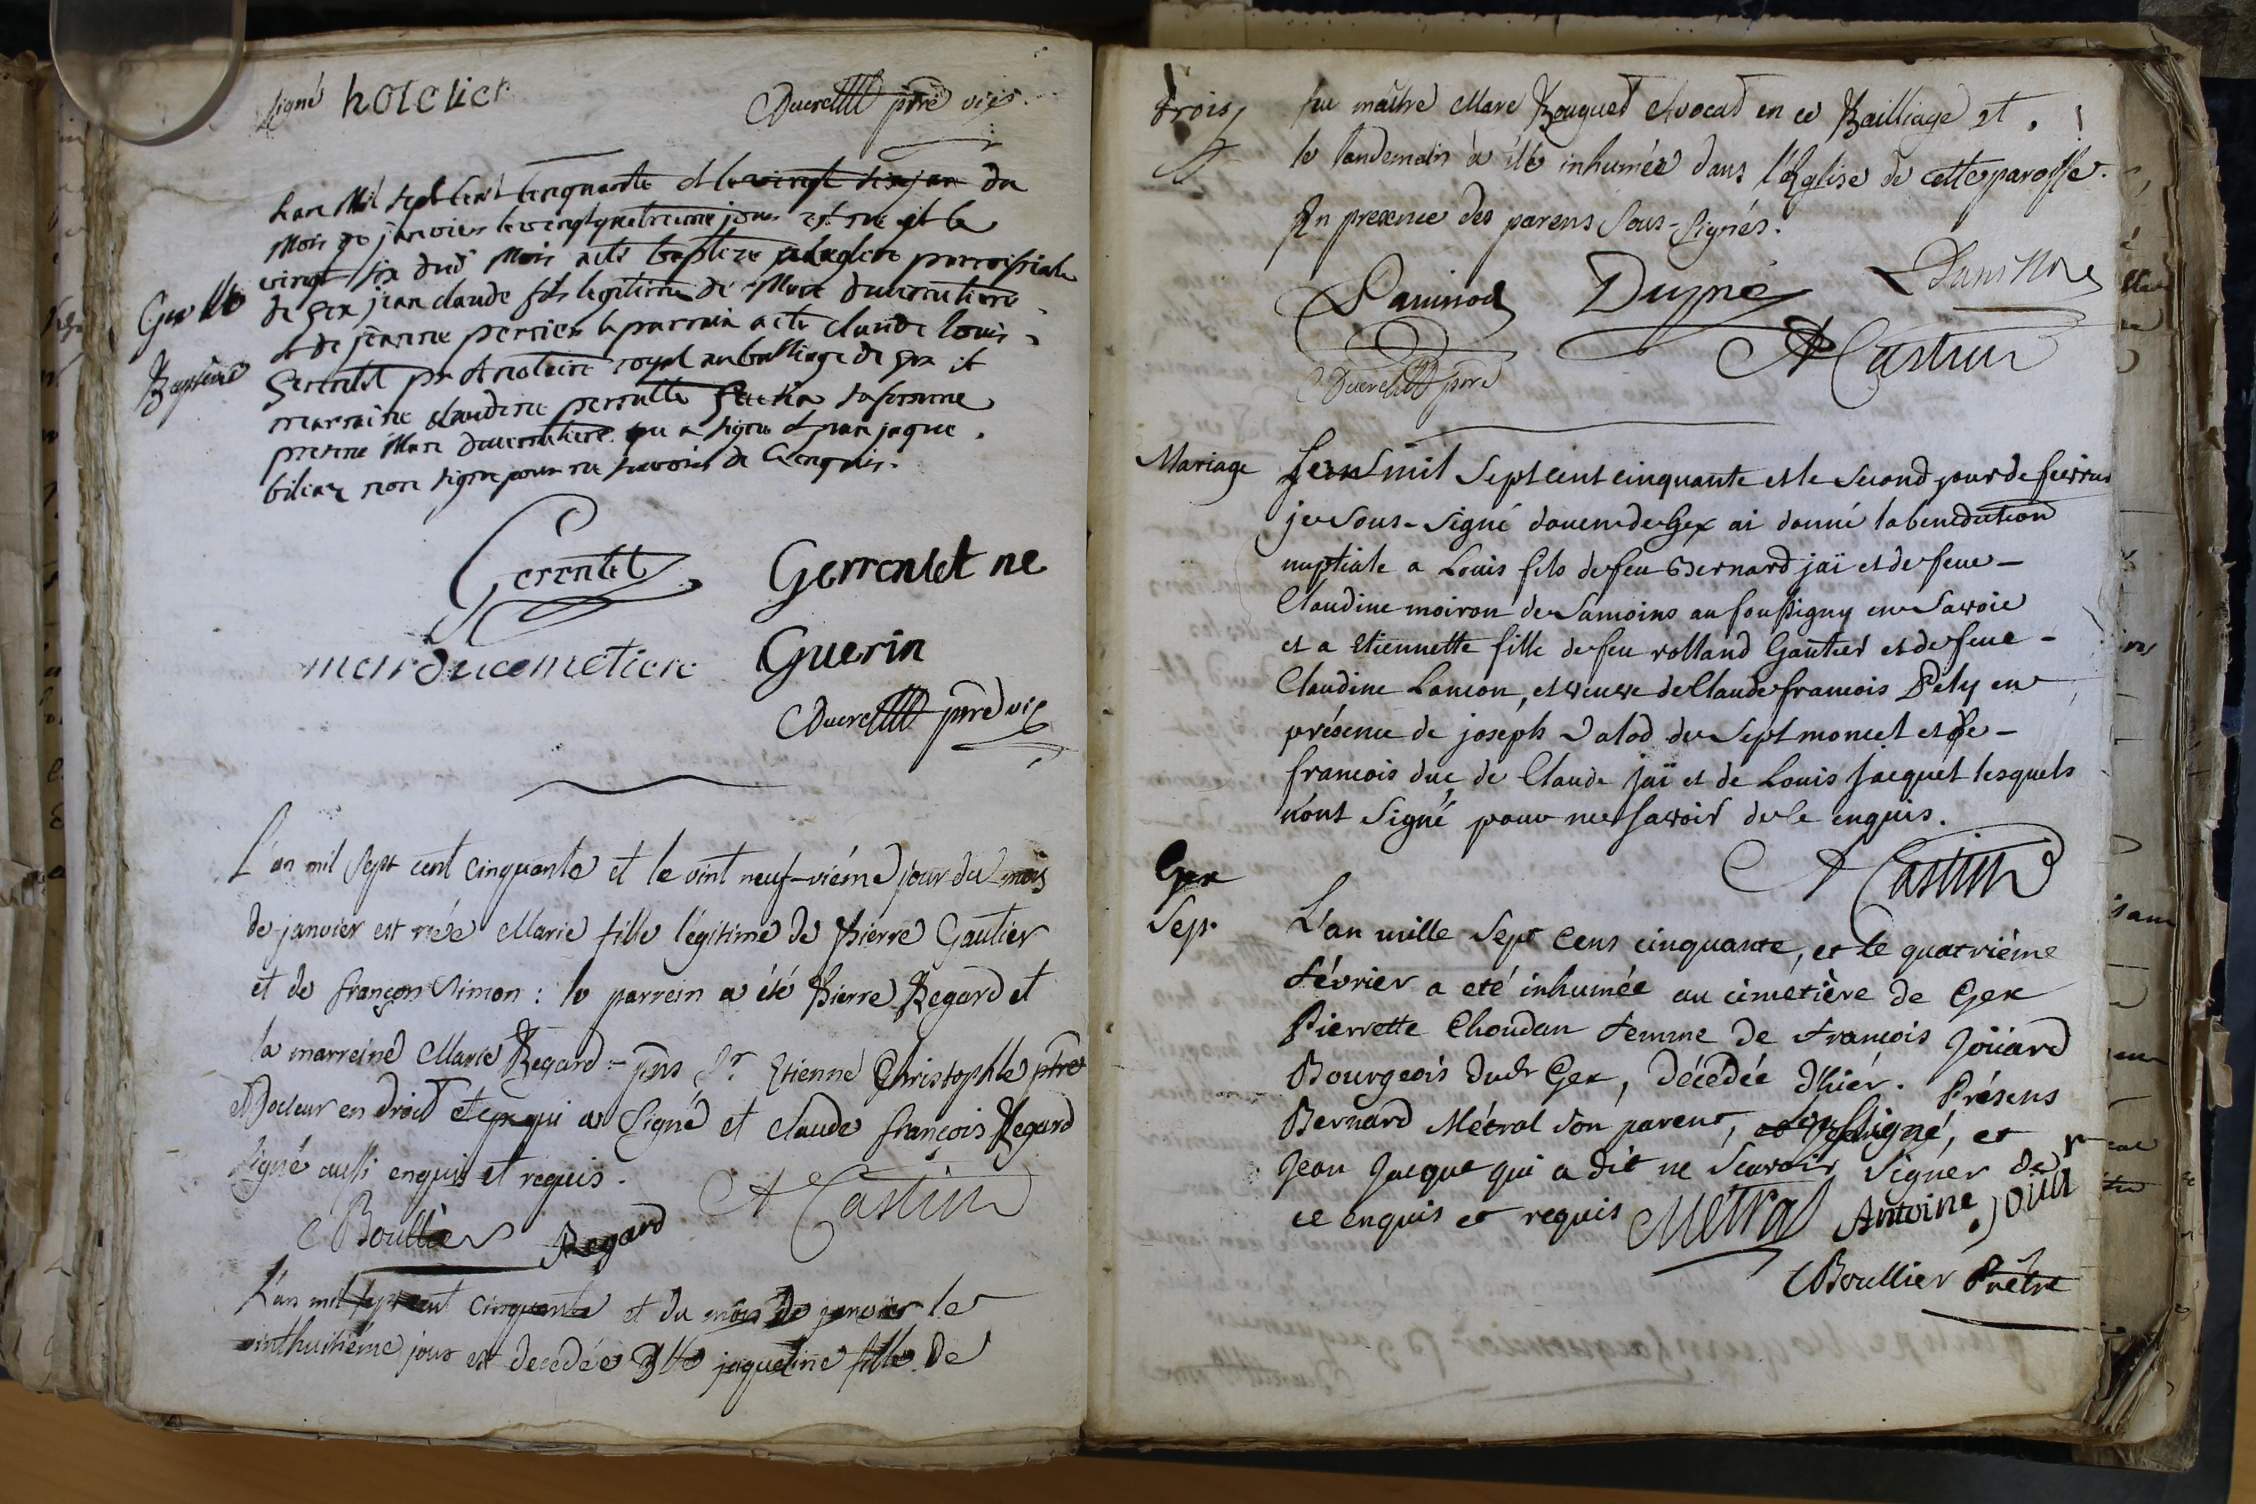 signé hotelier
Ducrettet prre vic
Lan Mil sept Cent Cinquante et le vingt six jan du
Mois de janvier le vingt quatrieme jour est né et le
vingt six dud Mois a ete baptize parroissiale
de Gex jean claude fils legitime de Marc ducemetiere
et de jeanne perrier le parrain a ete claude louis
Gerentet pr et notaire royal au bailliage de Gex et
marraine claudine perrette sa femme
presens Marc ducemetiere qui a signé et jean jaque
biliaz non signe pour ne scavoir de Ce enquis.
Gex
Baptême
Gerentet Gerrentet ne
marducemetiere Guerin
Ducrettet prre vic
L'an mil sept cent cinquante et le vint neuf-viéme jour du mois
de janvier est née Marie fille légitime de Pierre Gautier
et de françon Simon : le parrein a été Pierre Regard et
la marreine Marie Regard - pns Sr Etienne Christophle ptre
et Docteur en droit qui a Signé et claude françois Regard
signé aussi enquis et requis.
Boullier Regard A Castin
L'an mil sept cent cinquante et du mois de janvier le
vinthuitiéme jour est decedée Dlle jaqueline fille de
trois
feu maître Marc Rouguet Avocat en ce Bailliage et
le landemain a été inhumée dans l'Eglise de cette paroisse.
En presence des parens Sous-Signés.
Paninod Dupré
A Castin
Ducrettet prre
Mariage
Lan mil Sept cent cinquante et le Second jour de feivrier
je Sous-Signé doien de Gex ai donné la benediction
nuptiale a Louis fils de feu Bernard jaï et de feue
Claudine moiron de Samoins au foussigny en Savoie
et a Etiennette fille de feu rolland Gautier et de feue
Claudine Lancon, et veuve de Claude francois Pely en
présence de joseph dalod de Sept moncel et de
francois duc de Claude jaï et de Louis Jacquet lesquels
n'ont Signé pour ne Savoir de le enquis.
A Castin
Gex
Sep.
L'an mille Sept Cens cinquante, et le quatriéme
Février a eté inhumée au cimetière de Gex
Pierrette Choudan Femme de François Joüard
Bourgeois dudt Gex, décédée d'hiér. Présens
Bernard Métral son parent, Signé, et
Jean Jacque qui a dit ne Scavoir Signer de
ce enquis et requis Métral Antoine Jouar
Boullier Prêtre